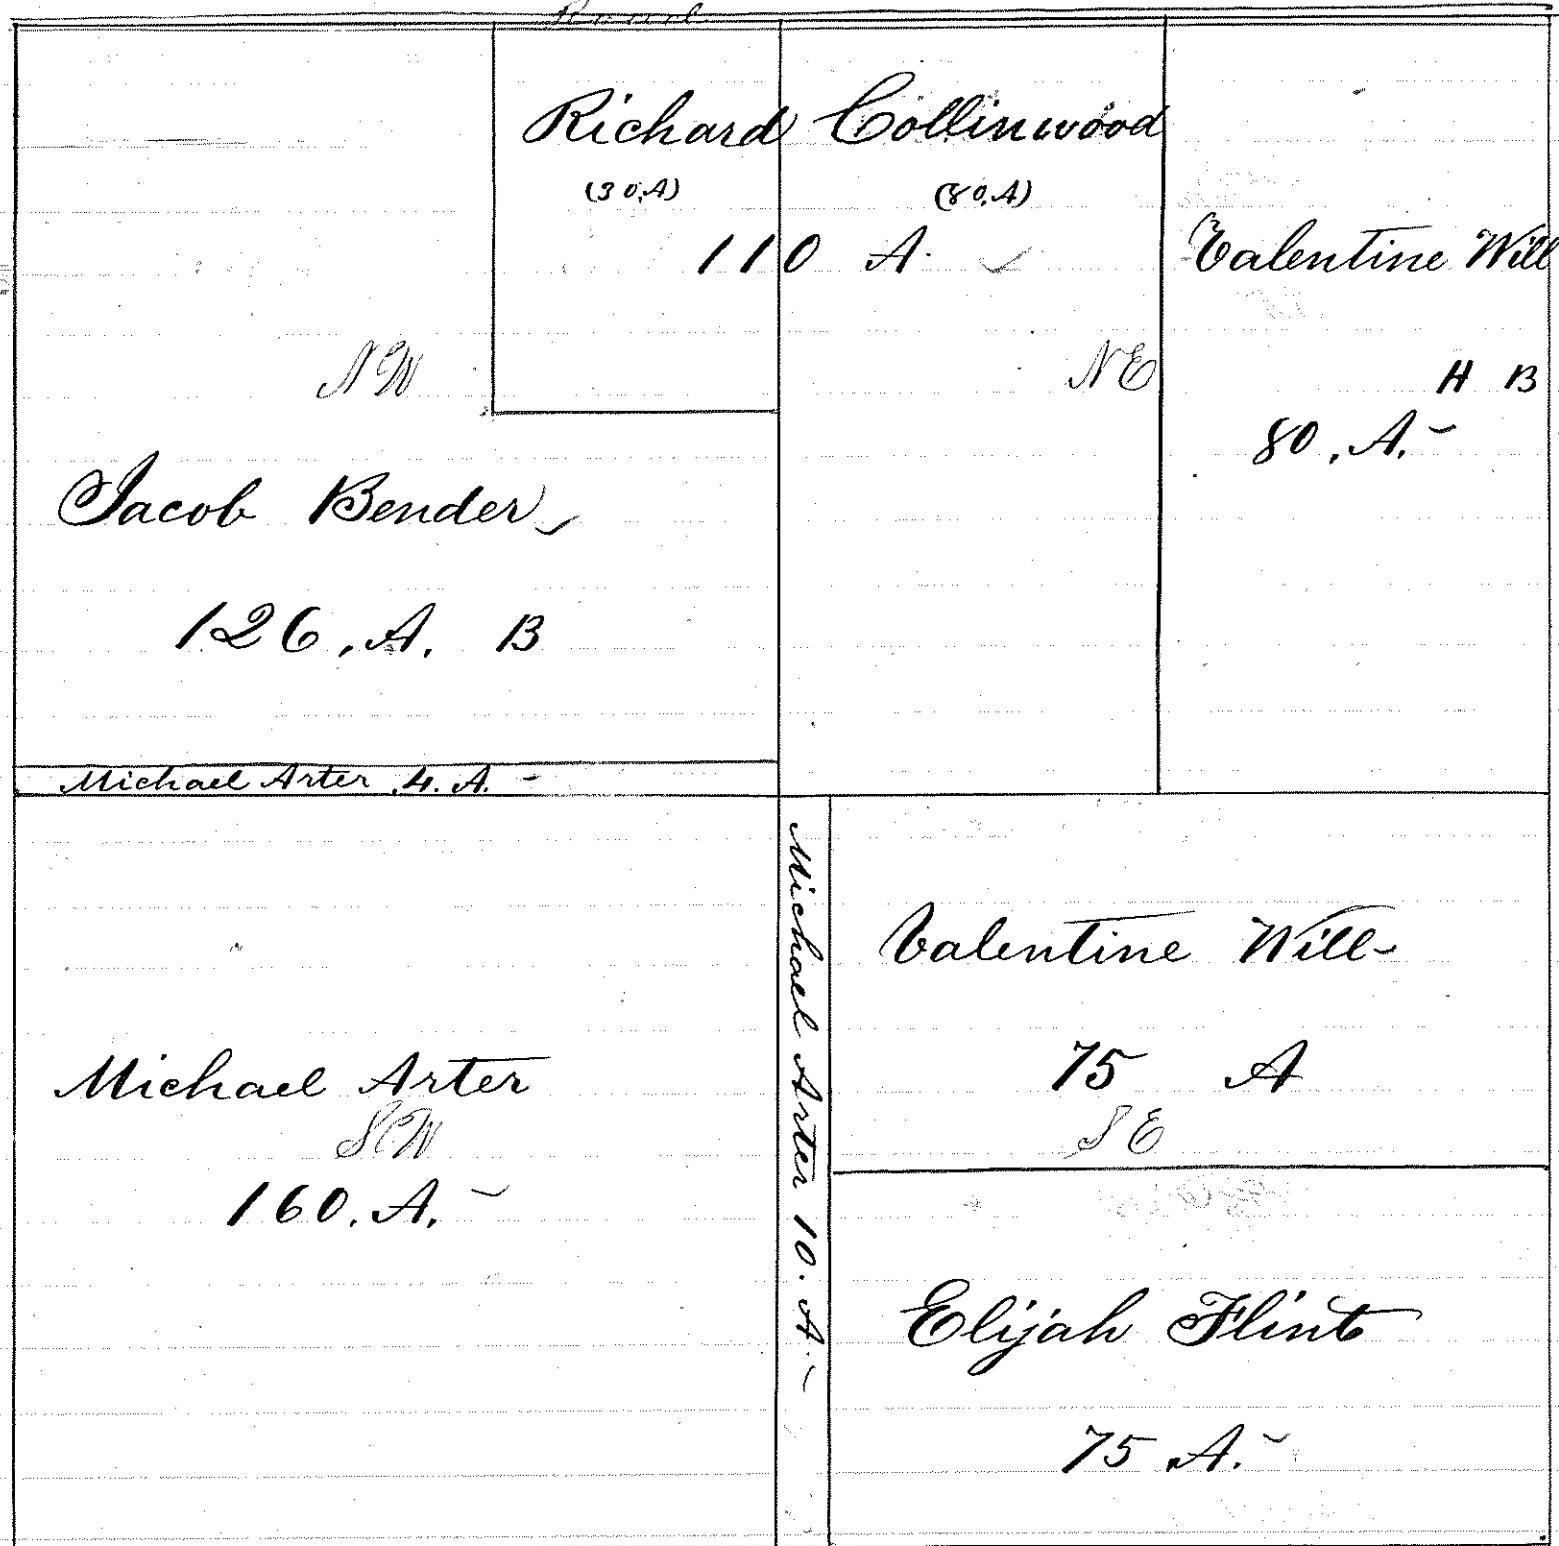 Richard Collinwood
(30.A) (80.A)
110 A.
Valentine Will
H B
80.A.
NW
NE
Jacob Bender
126.A. B
Michael Arter 4. A.
Michael Arter 10. A.
Valentine Will
75 A
SE
Michael Arter
SW
160. A.
Elijah Flint
75 A.